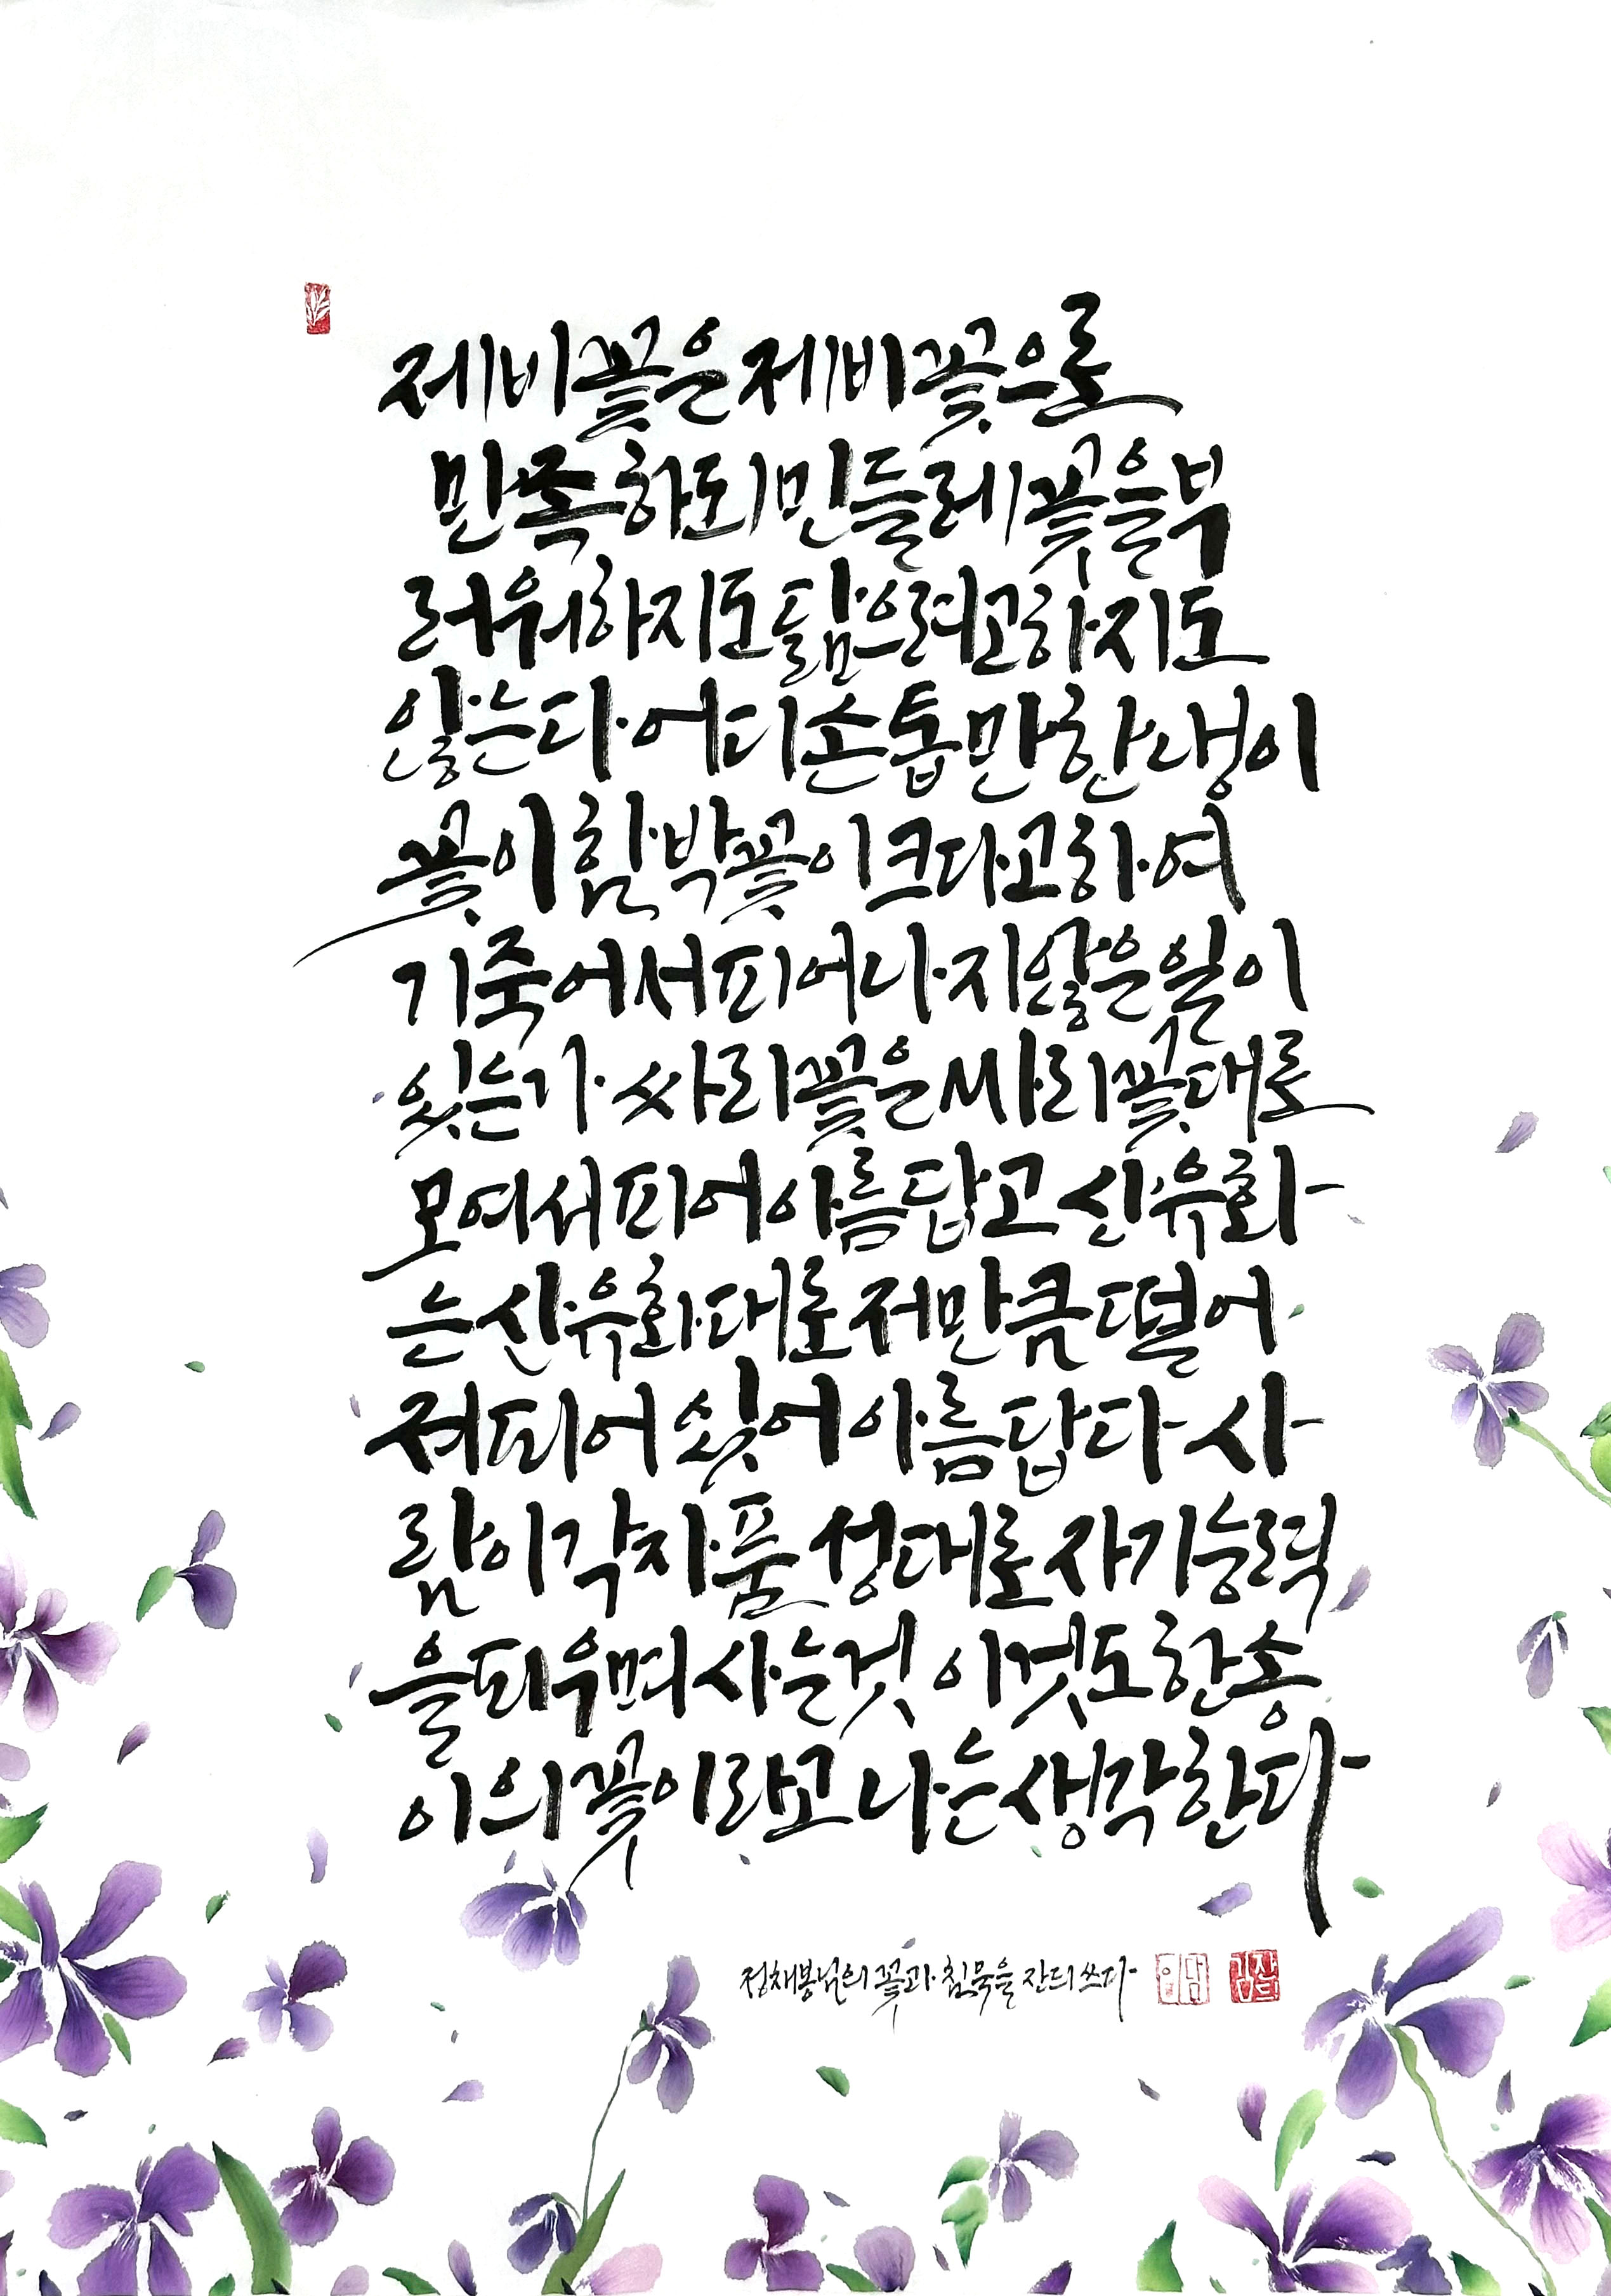 제비꽃은 제비꽃으로
만족하되 민들레꽃을 부
러워하지도 닮으려고 하지도
않는다 어디 손톱만한 냉이
꽃이 함박꽃이 크다고 하여
기죽어서 피어나지 않은 일이
있는가 싸리꽃은 싸리꽃대로
모여서 피어 아름답고 산유화
는 산유화대로 저만큼 떨어
져 피어 있어 아름답다 사
람이 각자 품성대로 자기 능력
을 피우며 사는 것 이것도 한송
이의 꽃이라고 나는 생각한다
정채봉님의 꽃과 침묵을 잔듸 쓰다
김잔듸